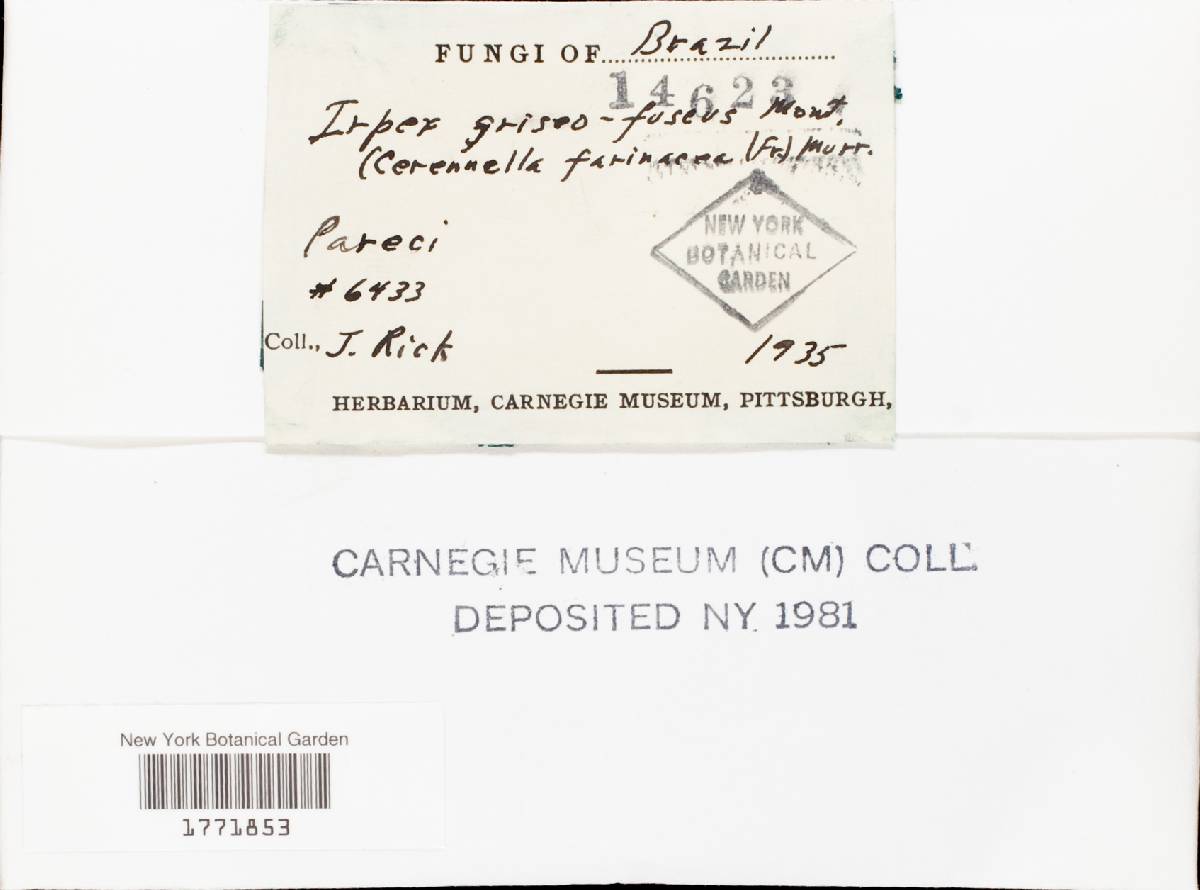 FUNGI OF Brazil
14623
Irpex griseo-fuscus Mont.
(Cerennella farinacea (Fr.) Murr.
NEW YORK
BOTANICAL
GARDEN
Pareci
# 6433
Coll., J. Rick 1935
HERBARIUM, CARNEGIE MUSEUM, PITTSBURGH,
CARNEGIE MUSEUM (CM) COLL.
DEPOSITED NY. 1981
New York Botanical Garden
1771853